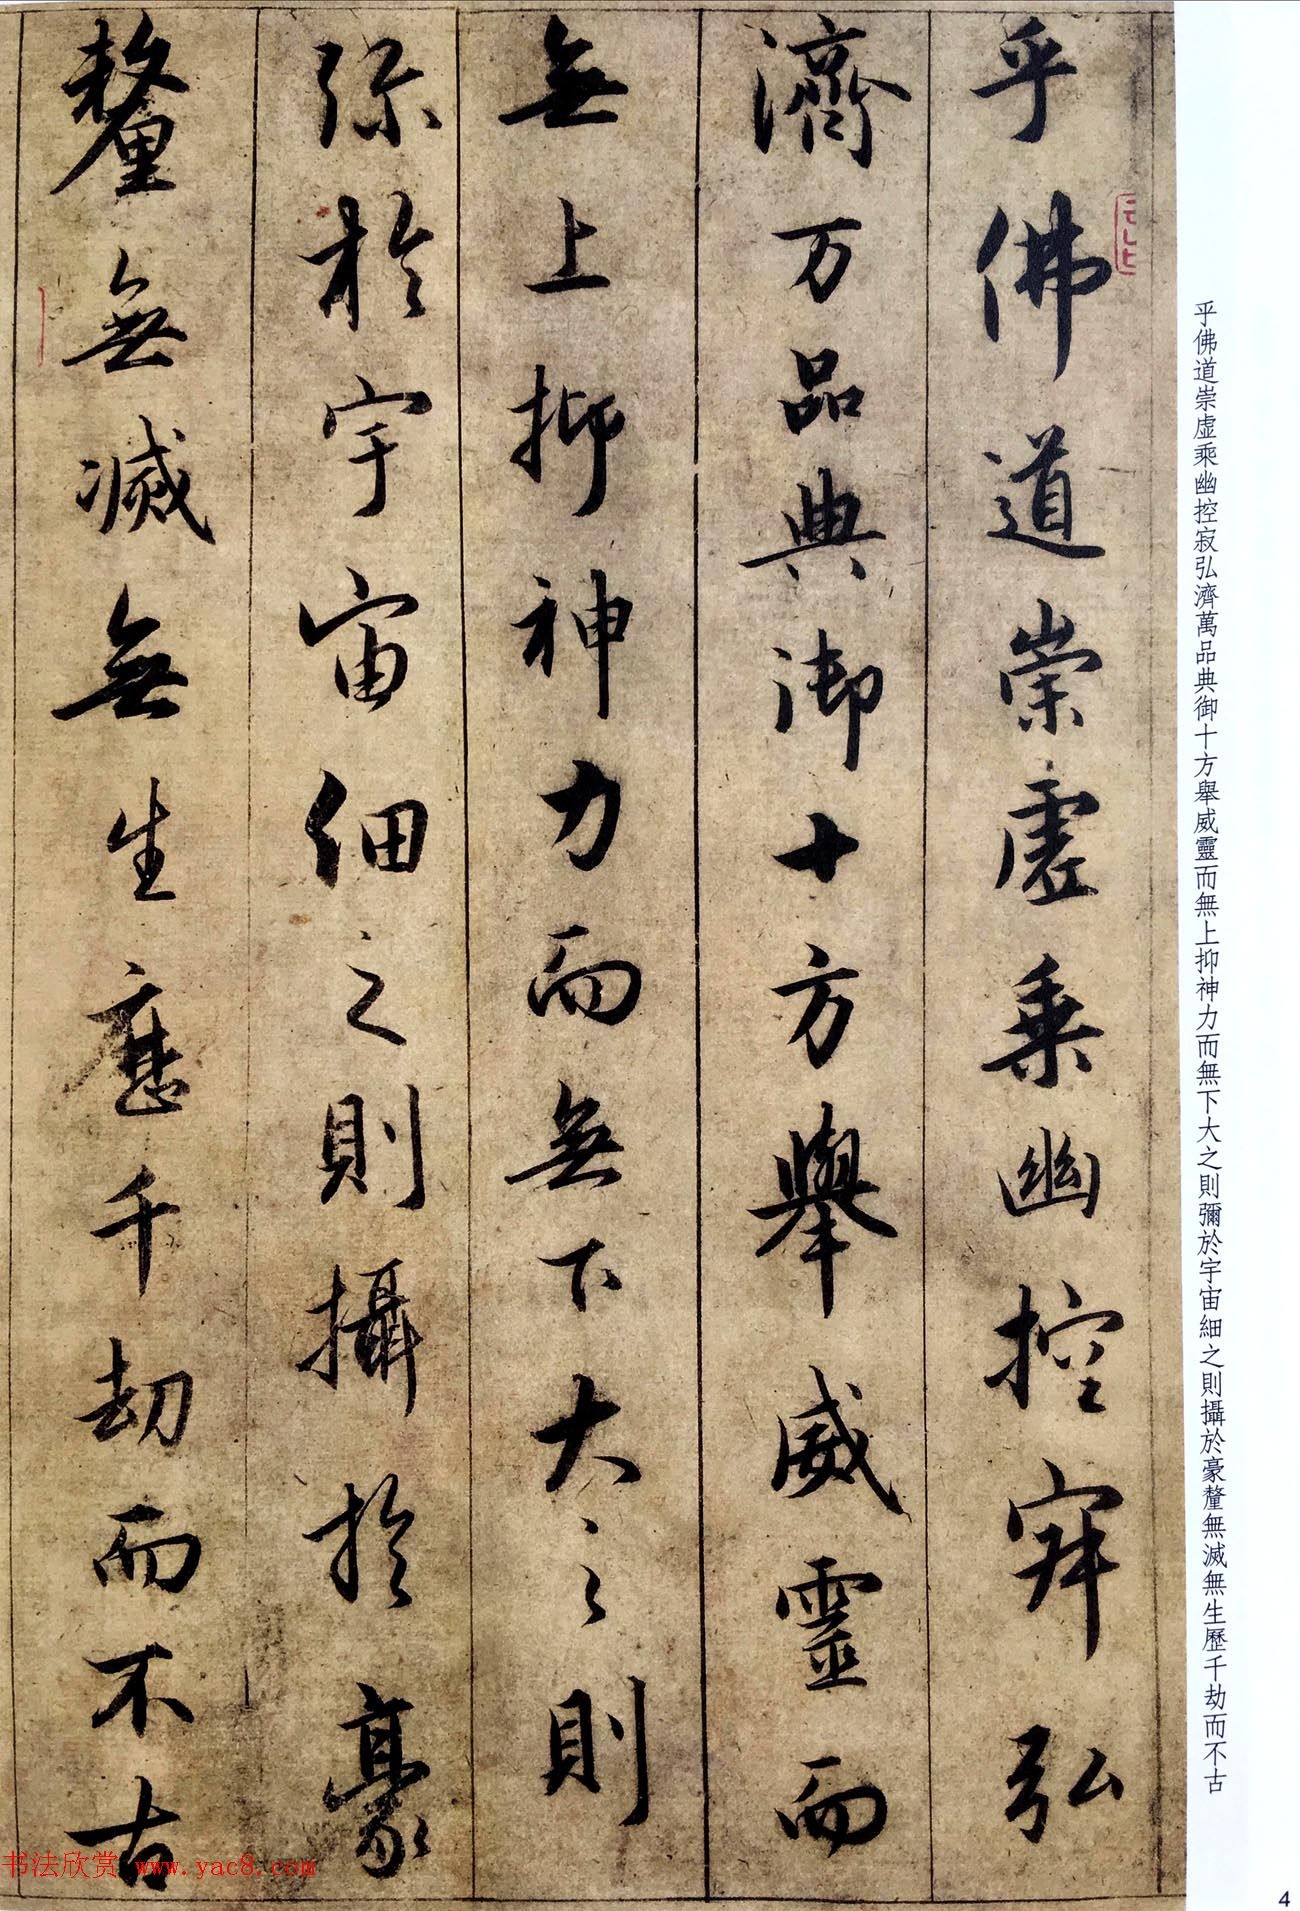 乎佛道崇虛乘幽控寂弘
濟万品典御十方舉威靈而
無上抑神力而無下大之則
弥於宇宙細之則攝於豪
釐無滅無生歷千劫而不古
乎佛道崇虛乘幽控寂弘濟萬品典御十方舉威靈而無上抑神力而無下大之則彌於宇宙細之則攝於豪釐無滅無生歷千劫而不古
书法欣赏 www.yac8.com
4